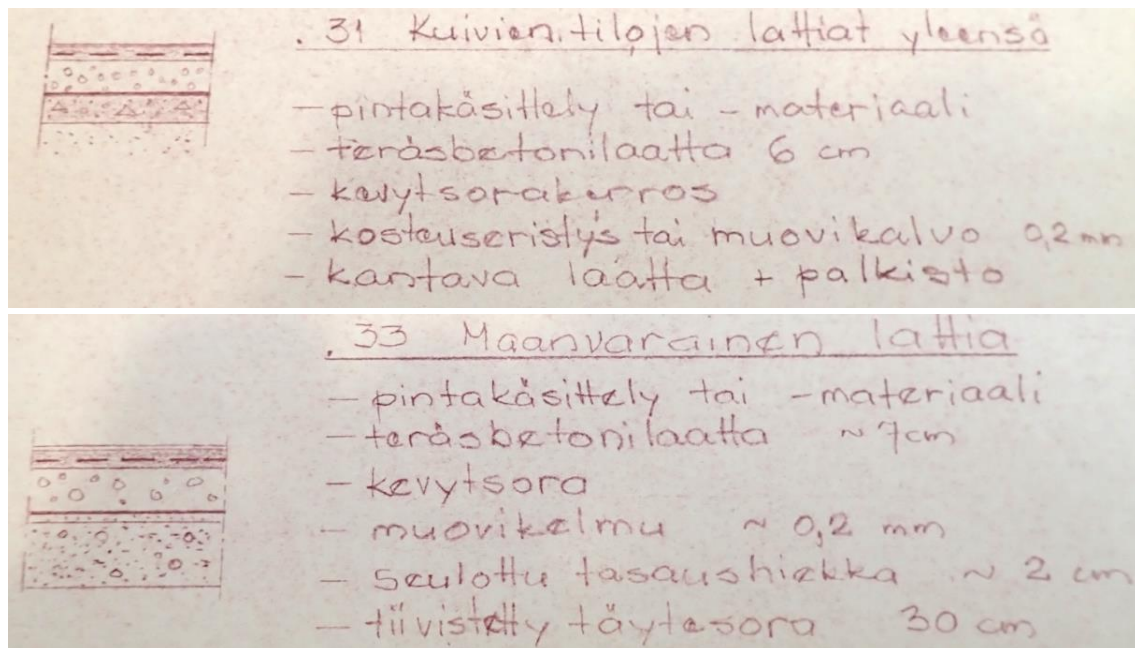 .31 Kuivien tilojen lattiat yleensä
- pintakäsittely tai - materiaali
- teräsbetonilaatta 6 cm
- kevytsorakerros
- kosteuseristys tai muovikalvo 0,2 mm
- kantava laatta + palkisto
.33 Maanvarainen lattia
- pintakäsittely tai -materiaali
- teräsbetonilaatta ~ 7cm
- kevytsora
- muovikelmu ~ 0,2 mm
- seulottu tasaushiekka ~ 2 cm
- tiivistetty täytesora 30 cm